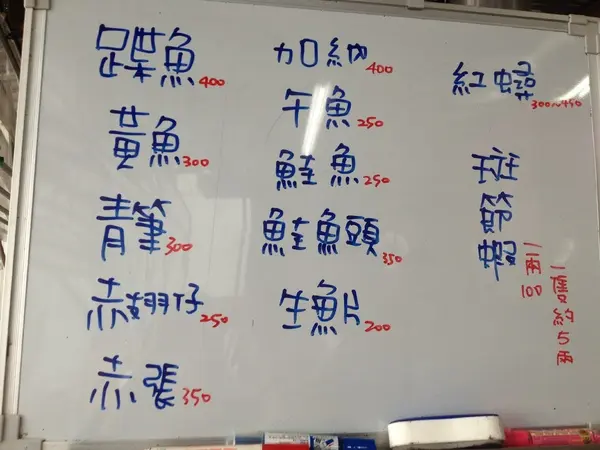 跳魚 400
黃魚 300
青筆 300
赤翅仔 250
赤張 350
加納 400
午魚 250
鮭魚 250
鮭魚頭 350
生魚片 200
紅蟳 300~450
斑節蝦 一兩100
一隻約5兩